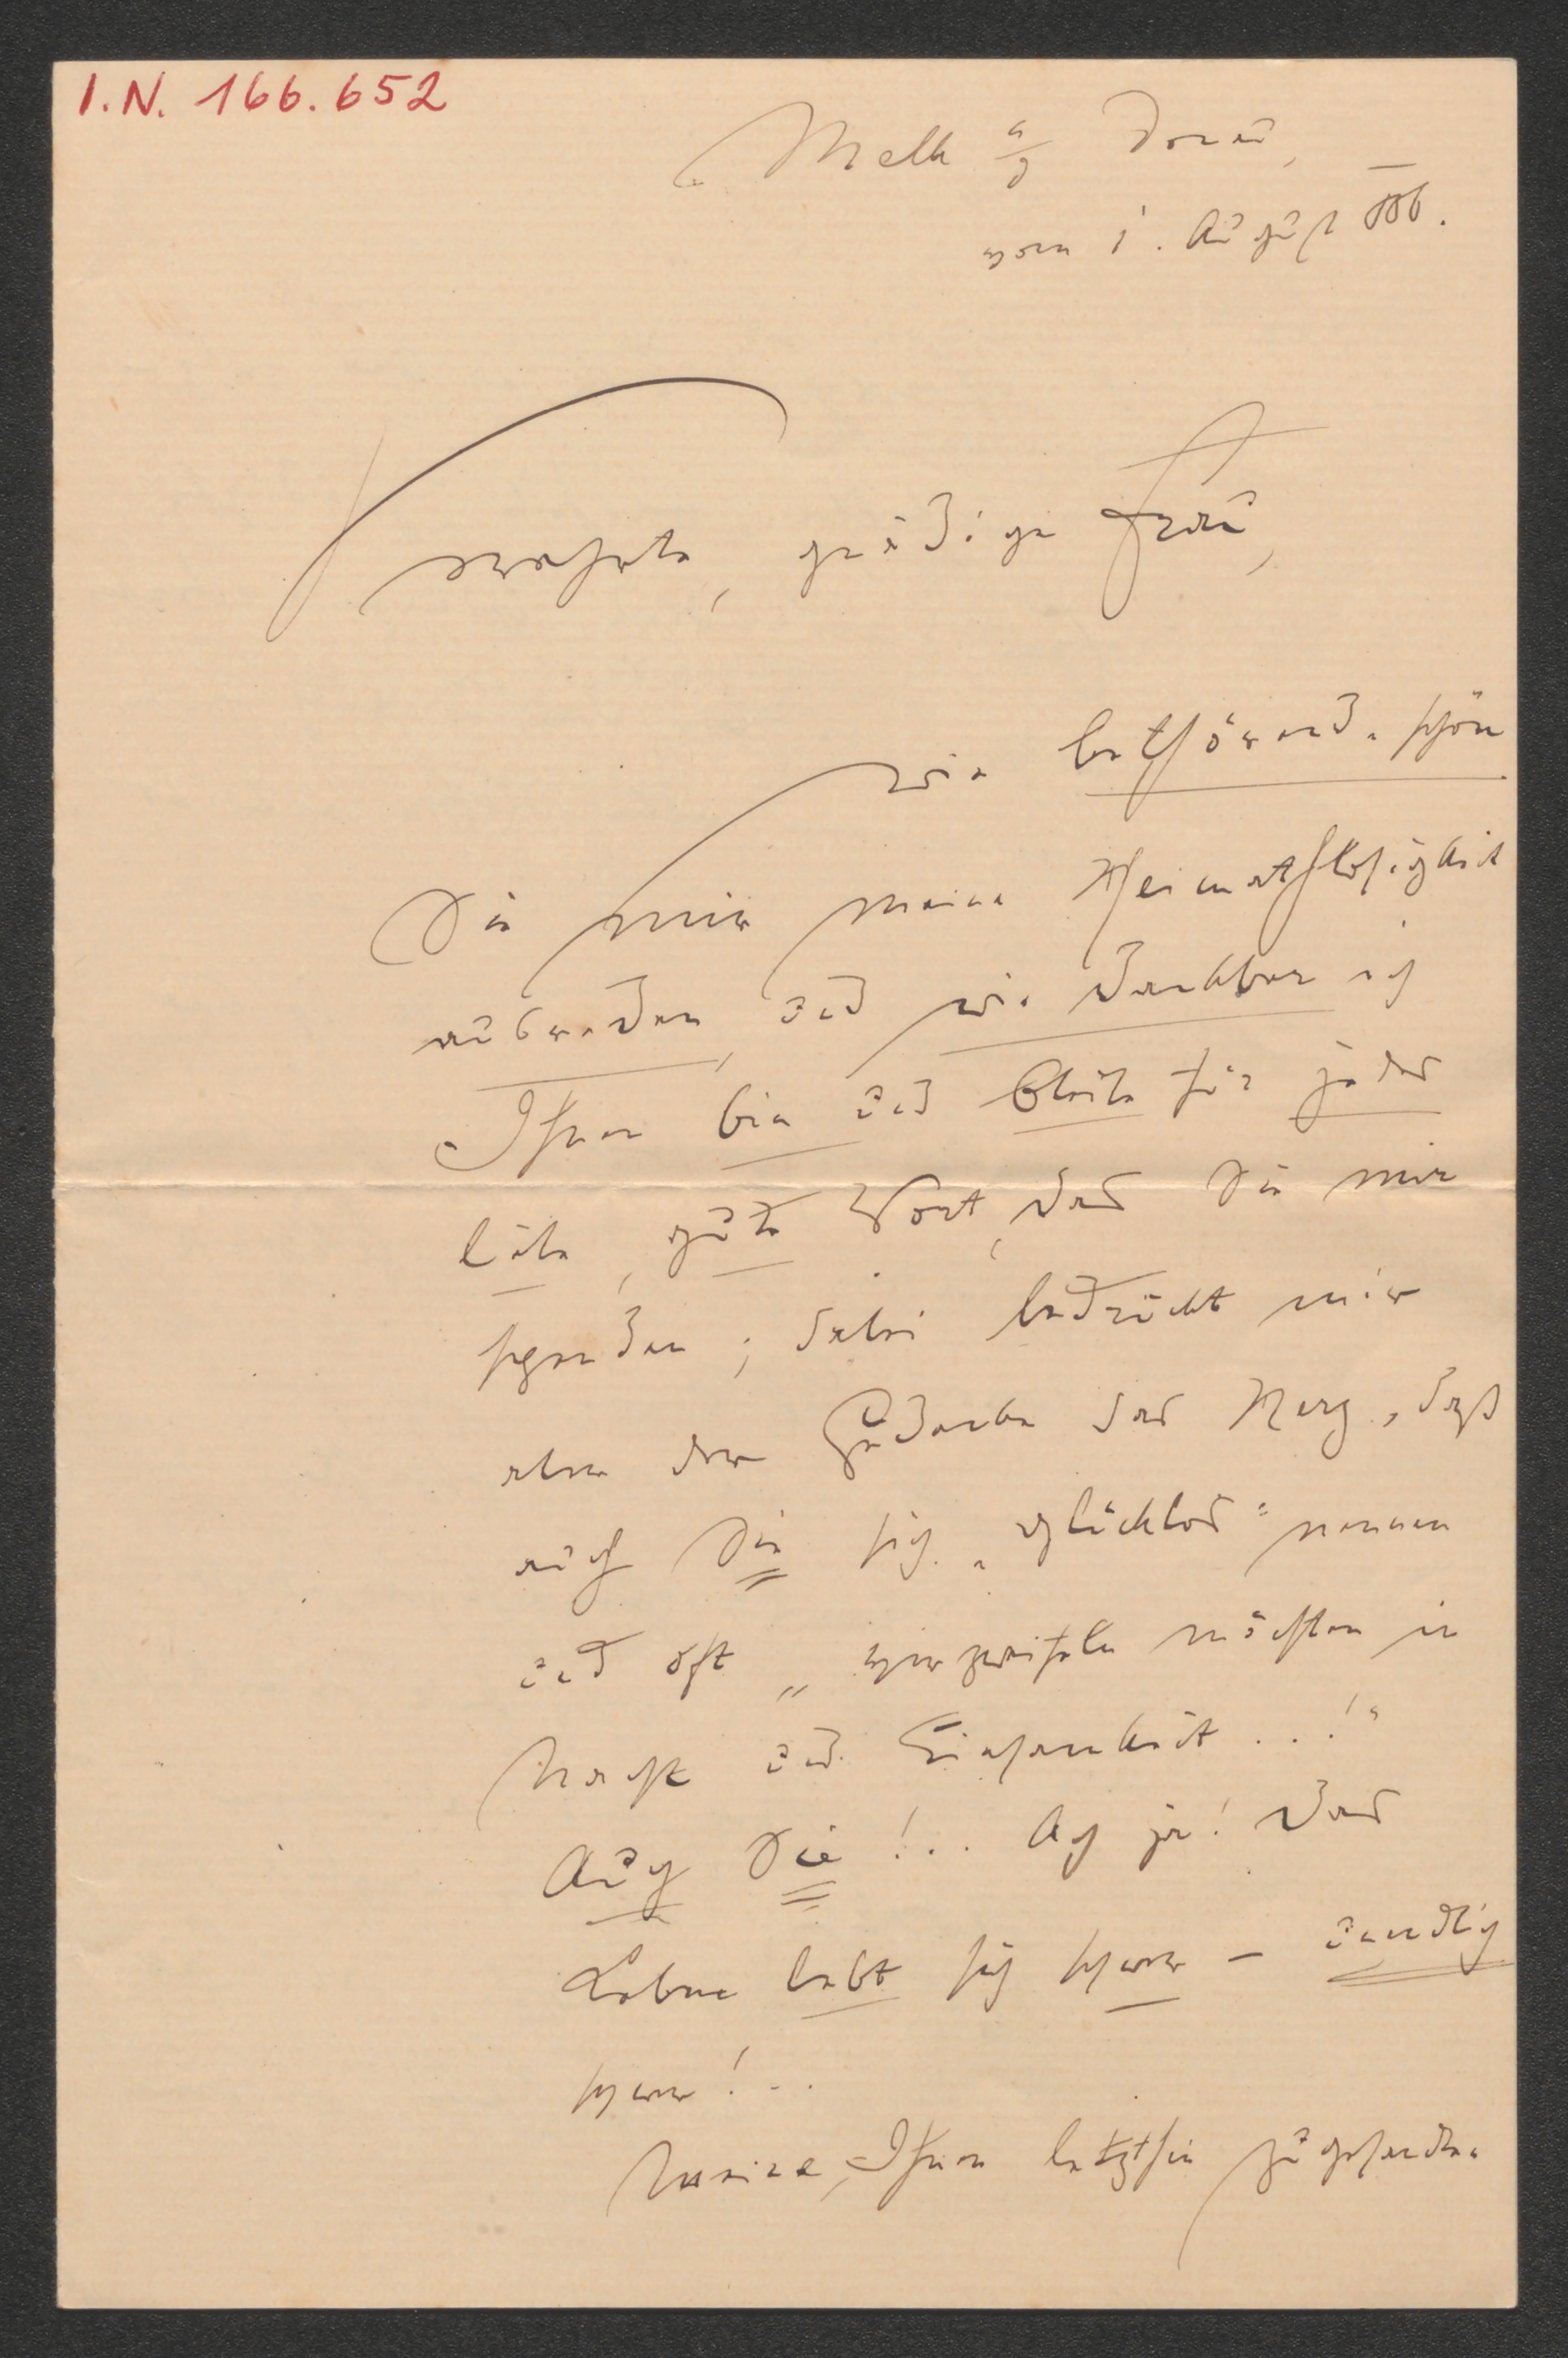 I.N. 166.652
Melk a/d Donau,
vom 1. August 886.
Verehrte, gnädige Frau,
wie bethörend schön
Sie mir meine Heimathlosigkeit
ausreden, und wie dankbar ich
Ihnen bin und bleibe für jedes
liebe, gute Wort, das Sie mir
spenden; dabei bedrückt mir
aber der Gedanke das Herz, daß
auch Sie sich „glücklos" nennen
und oft „verzweifeln möchten in
Nacht und Einsamkeit ..!"
Auch Sie!.. Ach ja! Das
Leben lebt sich schwer – unendlich
schwer!..
Meine, Ihnen letzthin zugesandten